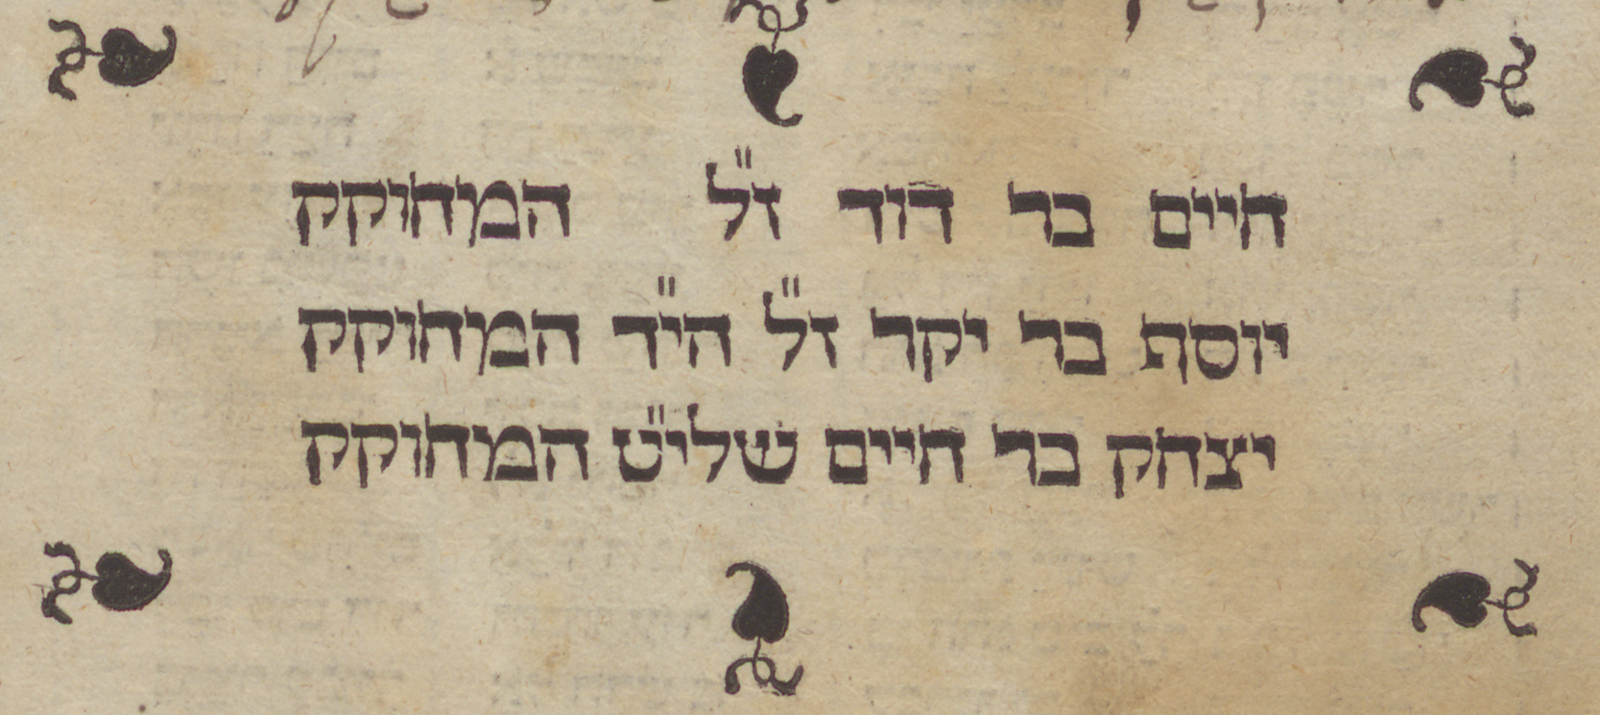 חיים בר דוד ז"ל המחוקק
יוסף בר יקר ז"ל הי"ד המחוקק
יצחק בר חיים שלי"ט המחוקק